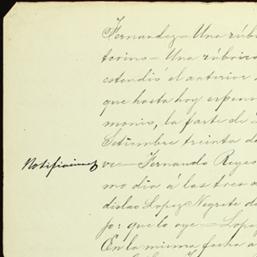 Fernandez — Una rúbri
torino — Una rúbrica
estendió el anterior
que hasta hoy espen
monio, la parte de
Setiembre treinta d
Notificación ve — Fernando Reyes
mo dia á las tres d
dislao Lopez Negrete d
jo: que lo oye — Lop
En la misma fecha